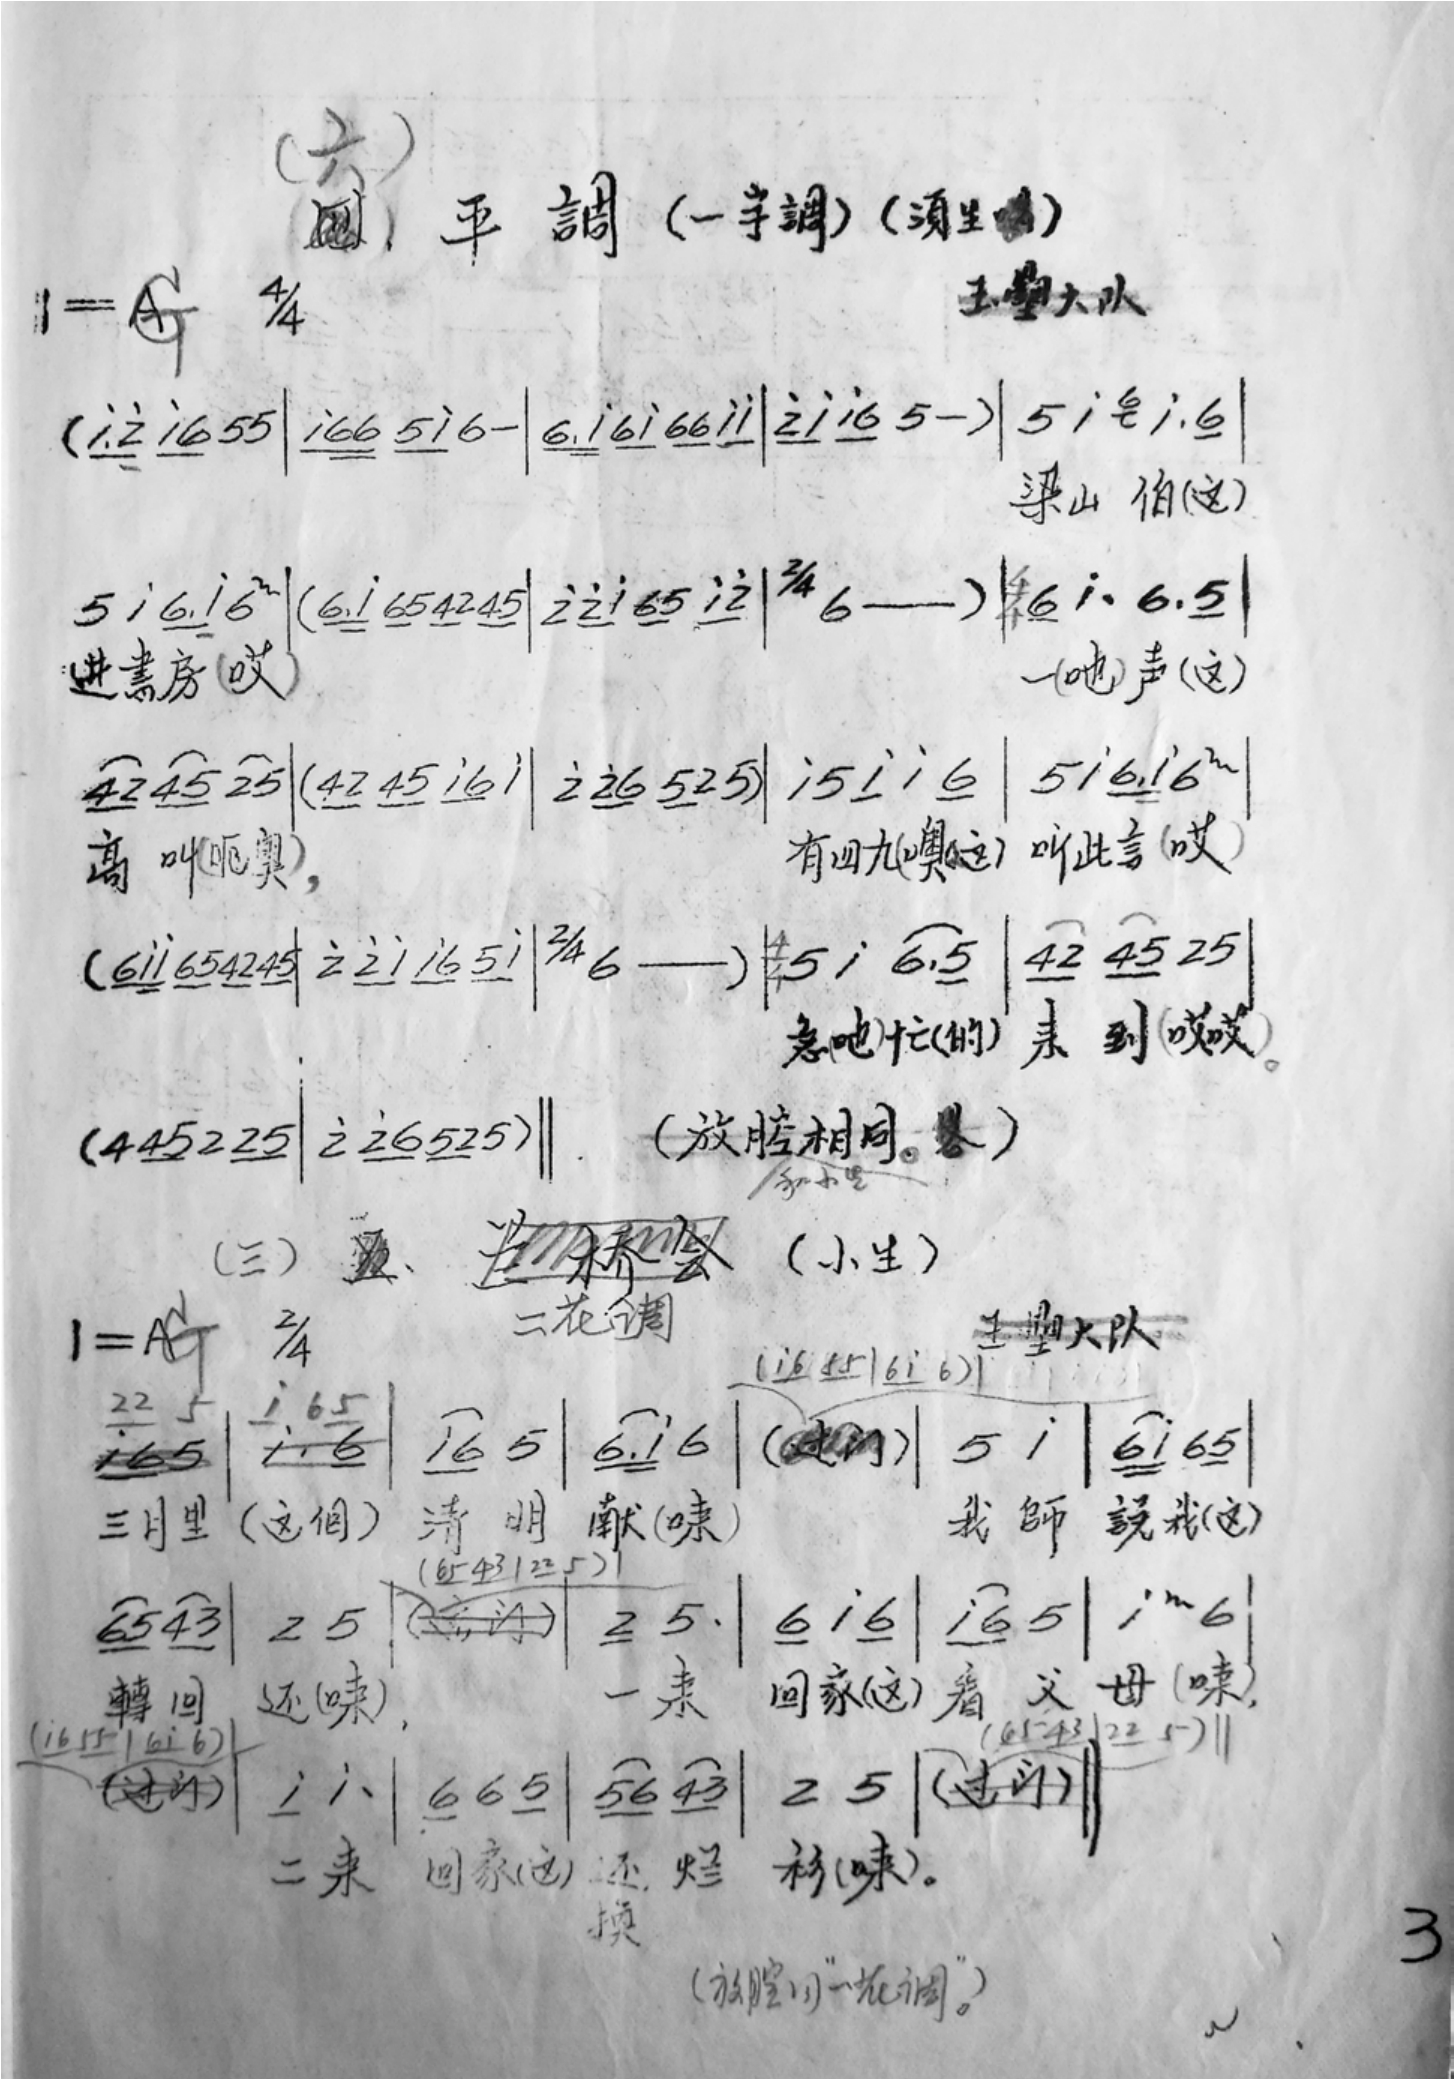 (六)
平 調 (一字調) (須生)
1=G 4/4
玉塱大队
(i.2 i6 55|i66 5i 6-|6.i 6i 66 ii|2i i6 5-)|5 i 6 i.6|
梁山 伯(这)
5 i 6.i 6|(6.i 65 42 45|2 2i 65 i2|2/4 6——)|4/4 6 i. 6.5|
进書房(哎) 一(吔)声(这)
42 45 25|(42 45 i6 i|2 26 525)|i5 i i 6|5 i 6.i 6|
高 叫(呃奥), 有四九(噢这) 听此言(哎)
(6ii 65 42 45|2 2i i6 5i|2/4 6——)|4/4 5 i 6.5|42 45 25|
急(吔)忙(的) 来 到(哎哎)。
(4 45 2 25|2 26 525)‖ (放腔相同。)
和小生
(三) 桥会 (小生)
二花调
1=G 2/4
玉塱大队
(i6 55|6i 6)|
22 5 i. 65
i65|i. 6|i6 5|6.i 6|(过门)|5 i|6i 65|
三月里 (这個) 清 明 献(唻) 我 師 説我(这)
(65 43|22 5)|
65 43|2 5|(过门)|2 5.|6 i 6|i6 5|i 6|
轉回 还(唻), 一 来 回家(这) 看 父 母 (唻),
(i6 55|6i 6)| (65 43|22 5)‖
(过门)|i i.|6 6 5|56 43|2 5|(过门)‖
二 来 回家(这) 还 烂 衫(唻)。
换
(放腔同"一花调"。)
3